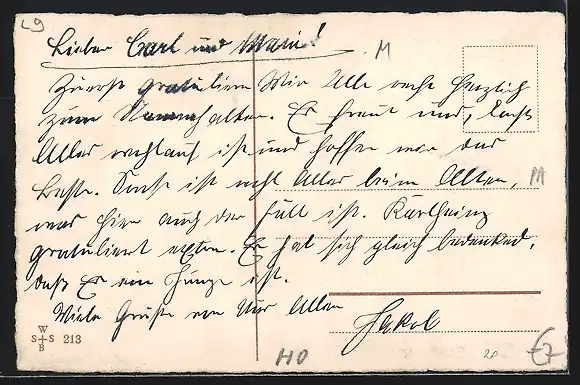 L9
Lieber Carl und Marie!
M
Zuerst gratulieren Wir Alle recht herzlich
zum Stammhalter. Es freut uns, dass
Alles wohlauf ist und hoffen wir das
Beste. Sonst ist noch Alles beim Alten,
was hier auch der Fall ist. Karlheinz
gratuliert extra. Er hat sich gleich bedanked,
daß Er ein Junge ist.
Viele Grüße von Uns Allen
Jakob
W
S+S 213
B
HO